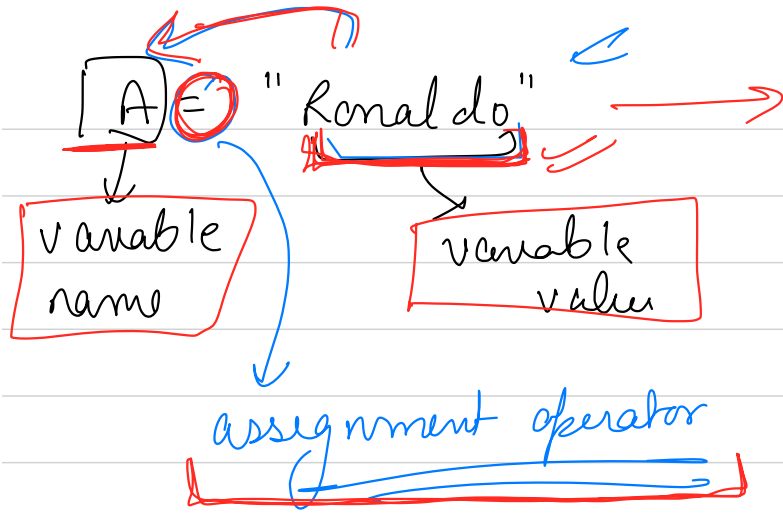 A = "Ronaldo"
variable
name
variable
value
assignment operator